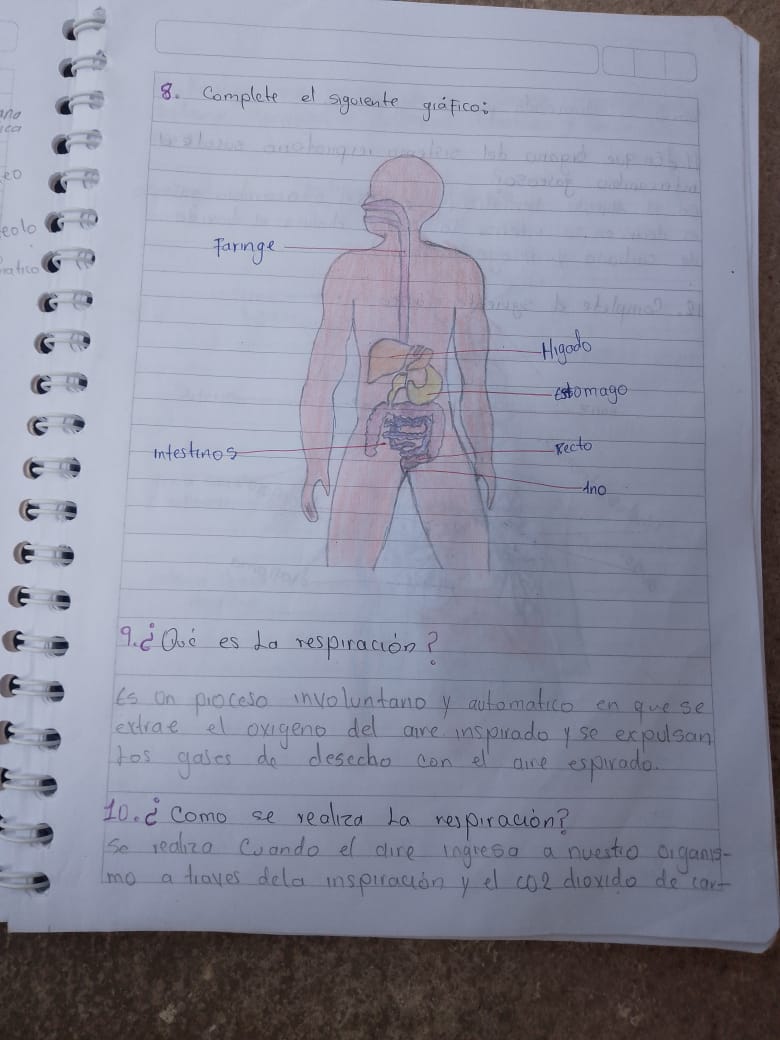 8. Complete el siguiente gráfico:
Faringe
Higado
Estomago
Intestinos
Recto
Ano
9.¿Qué es La respiración?
Es un proceso involuntario y automatico en que se
extrae el oxigeno del aire inspirado y se expulsan
Los gases de desecho con el aire espirado.
10.¿Como se realiza La respiración?
Se realiza Cuando el aire ingresa a nuestro organis-
mo a traves dela inspiración y el CO2 dioxido de car-
eolo